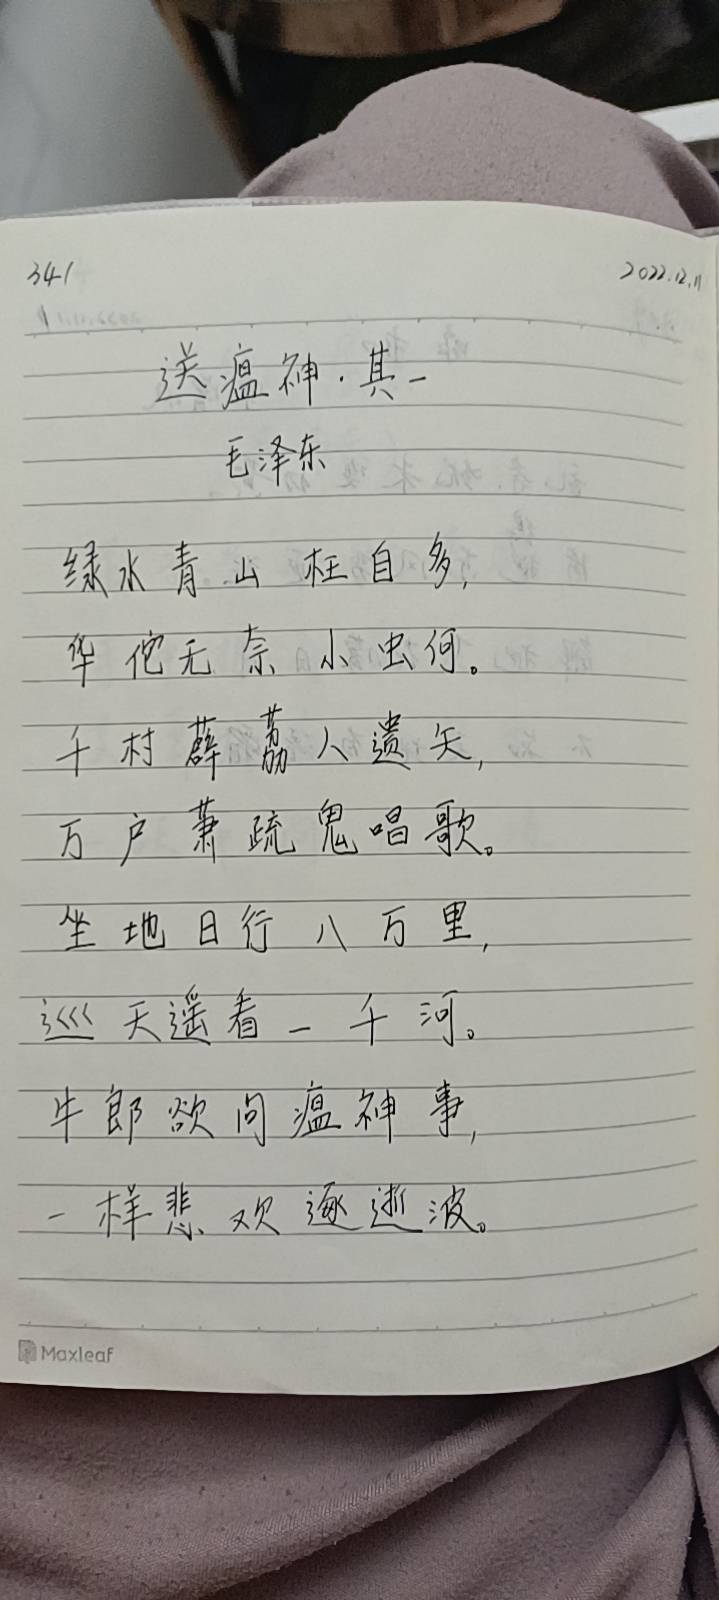 341 2022.12.11
送瘟神·其一
毛泽东
绿水青山枉自多,
华佗无奈小虫何。
千村薜荔人遗矢,
万户萧疏鬼唱歌。
坐地日行八万里,
巡天遥看一千河。
牛郎欲问瘟神事,
一样悲欢逐逝波。
Maxleaf